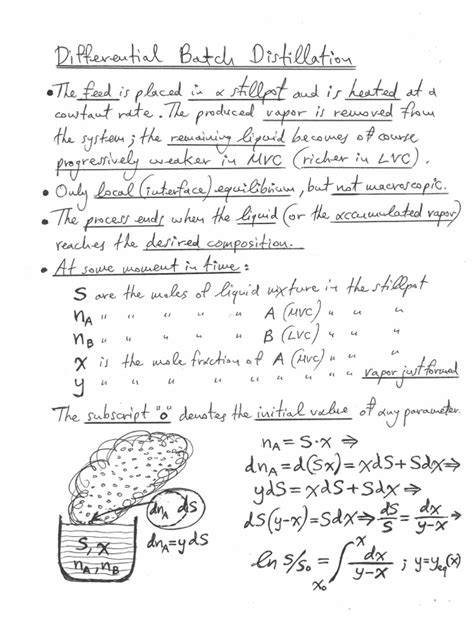 Differential Batch Distillation
• The feed is placed in a stillpot and is heated at a
constant rate. The produced vapor is removed from
the system; the remaining liquid becomes of course
progressively weaker in MVC (richer in LVC).
• Only local (interface) equilibrium, but not macroscopic.
• The process ends when the liquid (or the accumulated vapor)
reaches the desired composition.
• At some moment in time:
S are the moles of liquid mixture in the stillpot
n_A " " " " A (MVC) " " "
n_B " " " " B (LVC) " " "
x is the mole fraction of A (MVC) " " "
y " " " " " " " " vapor just formed
The subscript "o" denotes the initial value of any parameter.
n_A = S·x ⇒
dn_A = d(Sx) = xdS + Sdx ⇒
ydS = xdS + Sdx ⇒
dS(y-x) = Sdx ⇒ dS/S = dx/(y-x) ⇒
ln S/S_o = ∫_{x_o}^{x} dx/(y-x) ; y = y_eq(x)
dn_A dS
dn_A = ydS
S, x
n_A, n_B